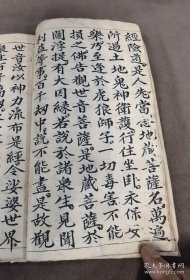 經險道是人先當念地藏菩薩名萬遍
所過土地鬼神衛護行住坐卧永保安
樂乃至逢於虎狼師子一切毒害不能
損之佛告觀世音菩薩是地藏菩薩於
閻浮提有大因緣若說於諸衆生見聞
利益等事百千劫中說不能盡是故觀
世音汝以神力流布是經令娑婆世界